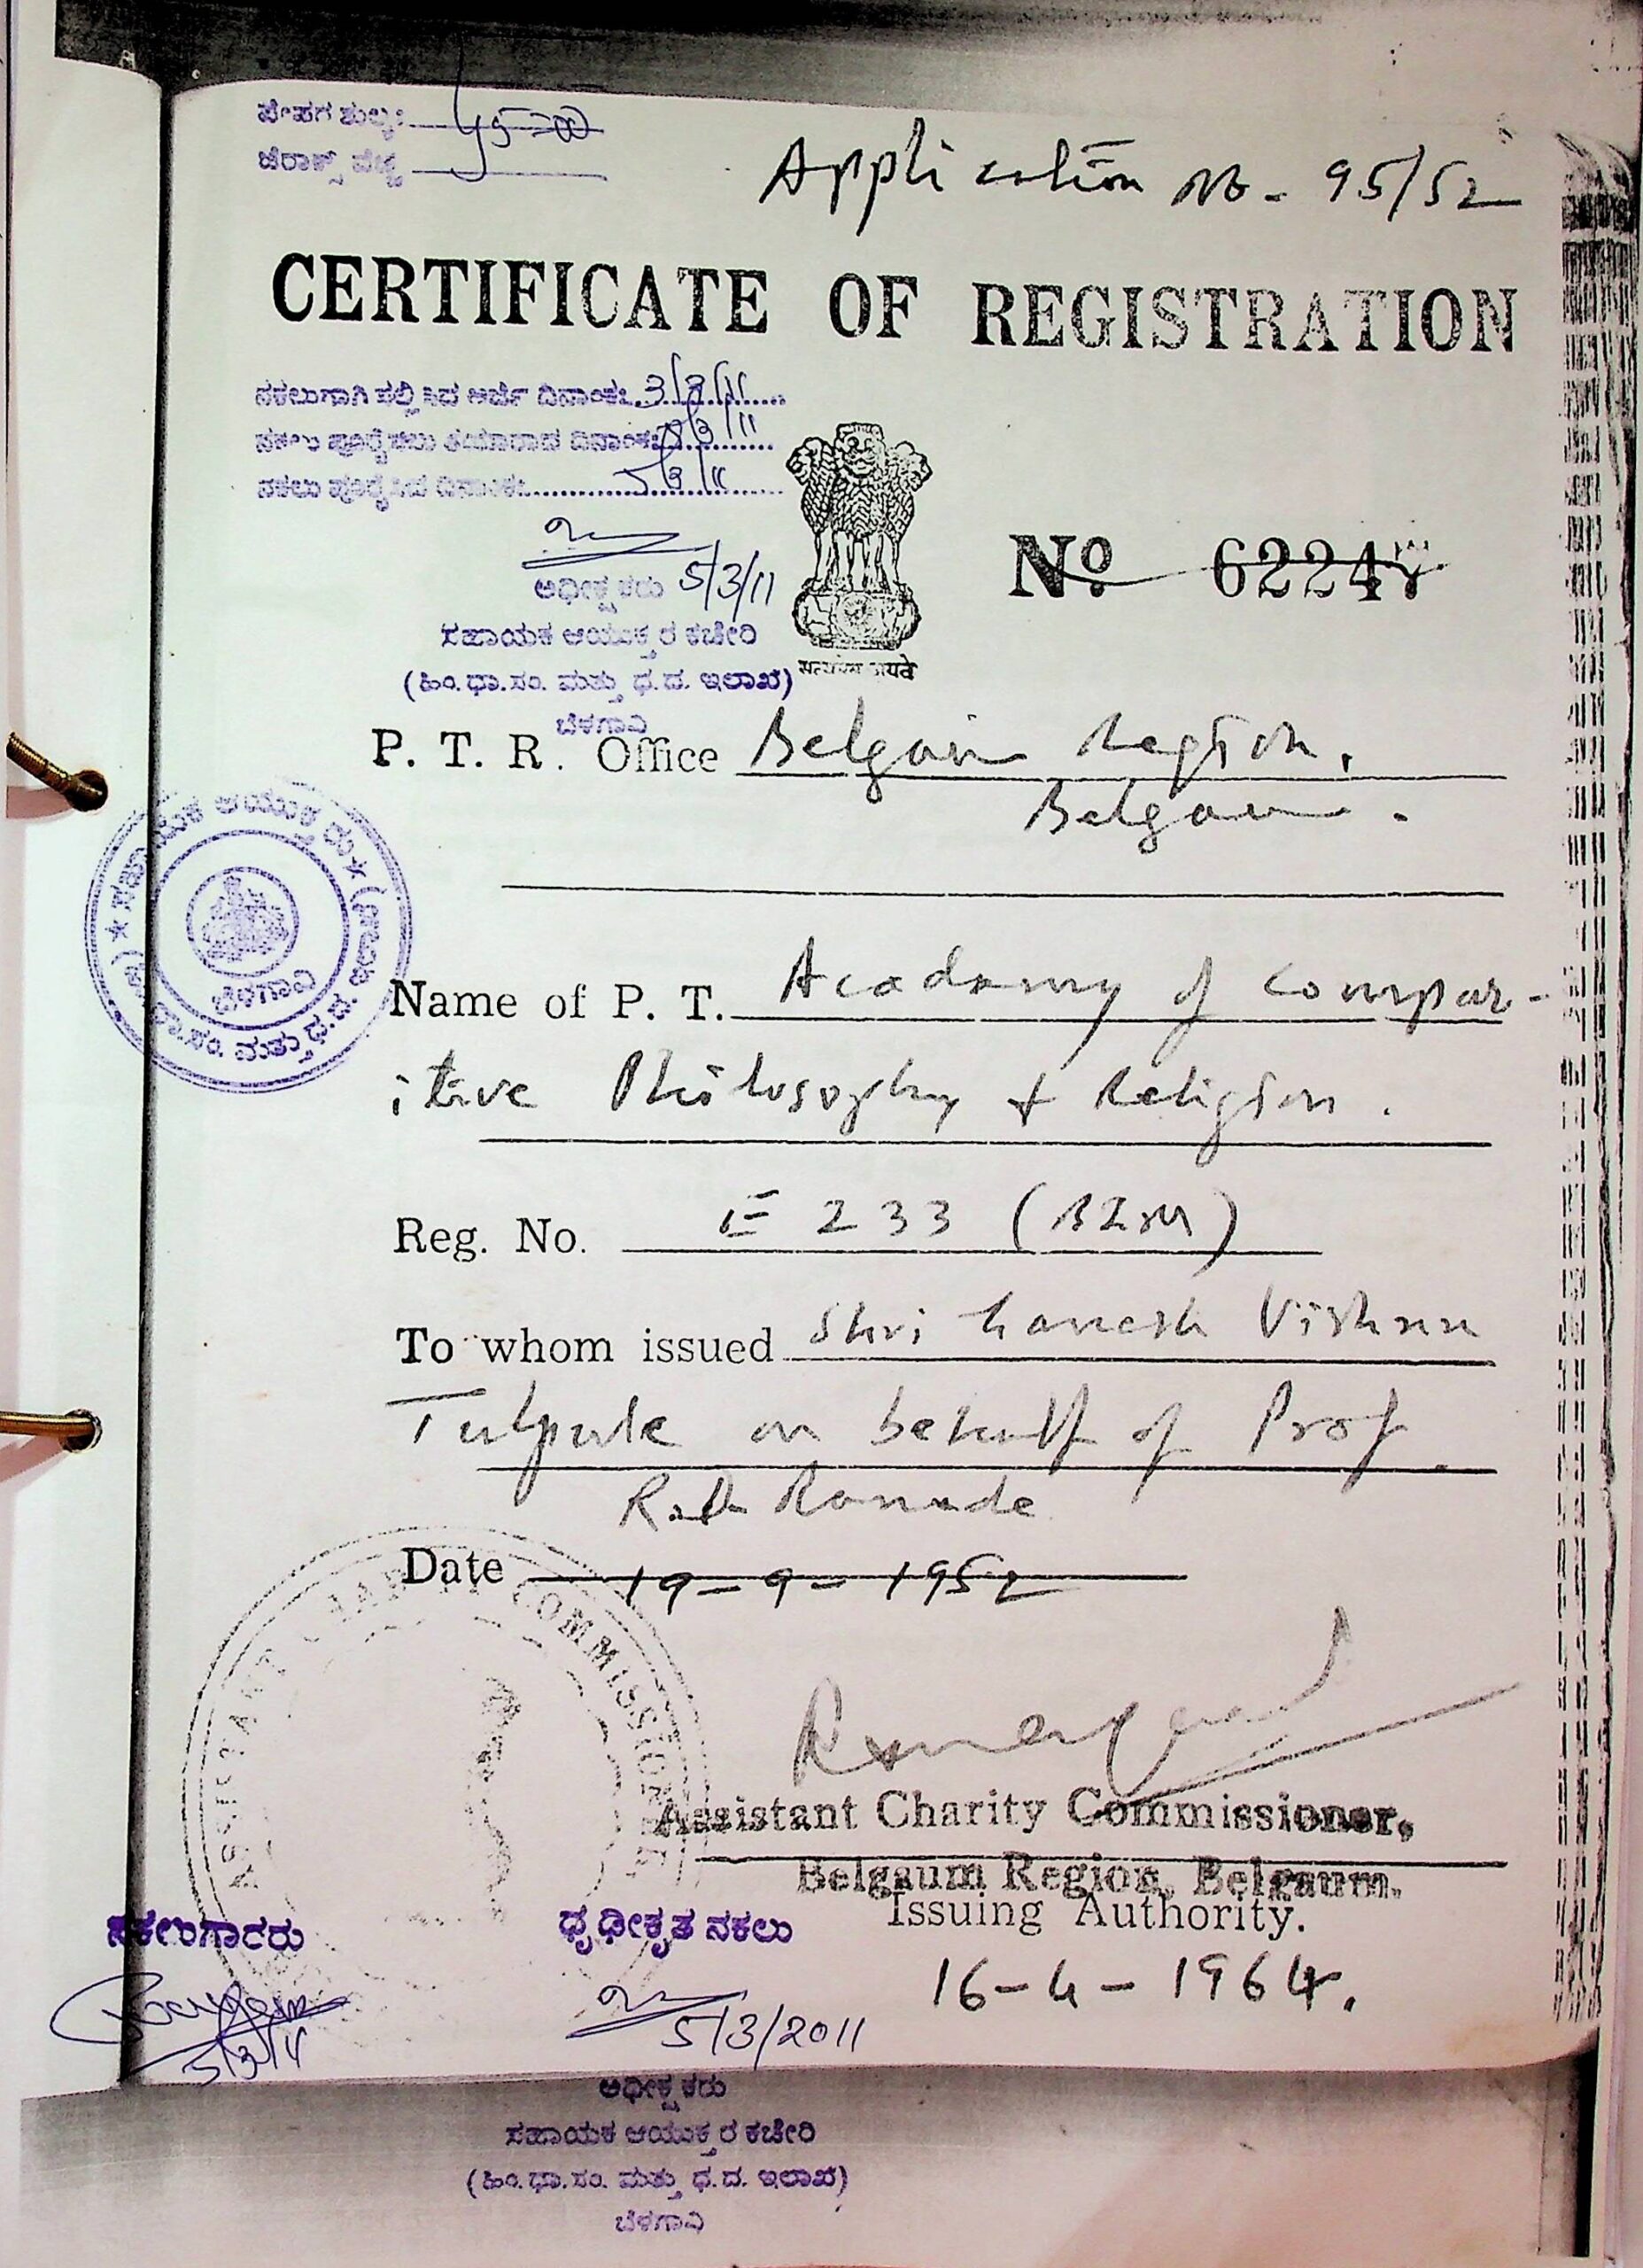 ಪೇಪಗ ಶುಲ್ಕ: 45=00
ಜೆರಾಕ್ಸ್ ವೆಚ್ಚ
Application No - 95/52
CERTIFICATE OF REGISTRATION
ನಕಲುಗಾಗಿ ಸಲ್ಲಿಸಿದ ಅರ್ಜಿ ದಿನಾಂಕ: 3/3/11
ನಕಲು ಪೂರೈಸಲು ತಯಾರಾದ ದಿನಾಂಕ: 5/3/11
ನಕಲು ಪೂರೈಸಿದ ದಿನಾಂಕ: 5/3/11
5/3/11
ಅಧೀಕ್ಷಕರು
ಸಹಾಯಕ ಆಯುಕ್ತರ ಕಚೇರಿ
(ಹಿಂ.ಧಾ.ಸಂ. ಮತ್ತು ಧ.ದ. ಇಲಾಖೆ)
ಬೆಳಗಾವಿ
सत्यमेव जयते
No 6224
P. T. R. Office Belgaum Region,
Belgaum.
Name of P. T. Academy of Compar-
itive Philosophy & Religion.
Reg. No. E 233 (BZM)
To whom issued Shri Ganesh Vishnu
Tulpule on behalf of Prof.
R.D. Ranade
Date 19-9-1952
ASSISTANT CHARITY COMMISSIONER
Assistant Charity Commissioner,
Belgaum Region, Belgaum.
Issuing Authority.
16-4-1964.
ನಕಲುಗಾರರು
5/3/11
ಧೃಢೀಕೃತ ನಕಲು
5/3/2011
ಅಧೀಕ್ಷಕರು
ಸಹಾಯಕ ಆಯುಕ್ತರ ಕಚೇರಿ
(ಹಿಂ.ಧಾ.ಸಂ. ಮತ್ತು ಧ.ದ. ಇಲಾಖೆ)
ಬೆಳಗಾವಿ